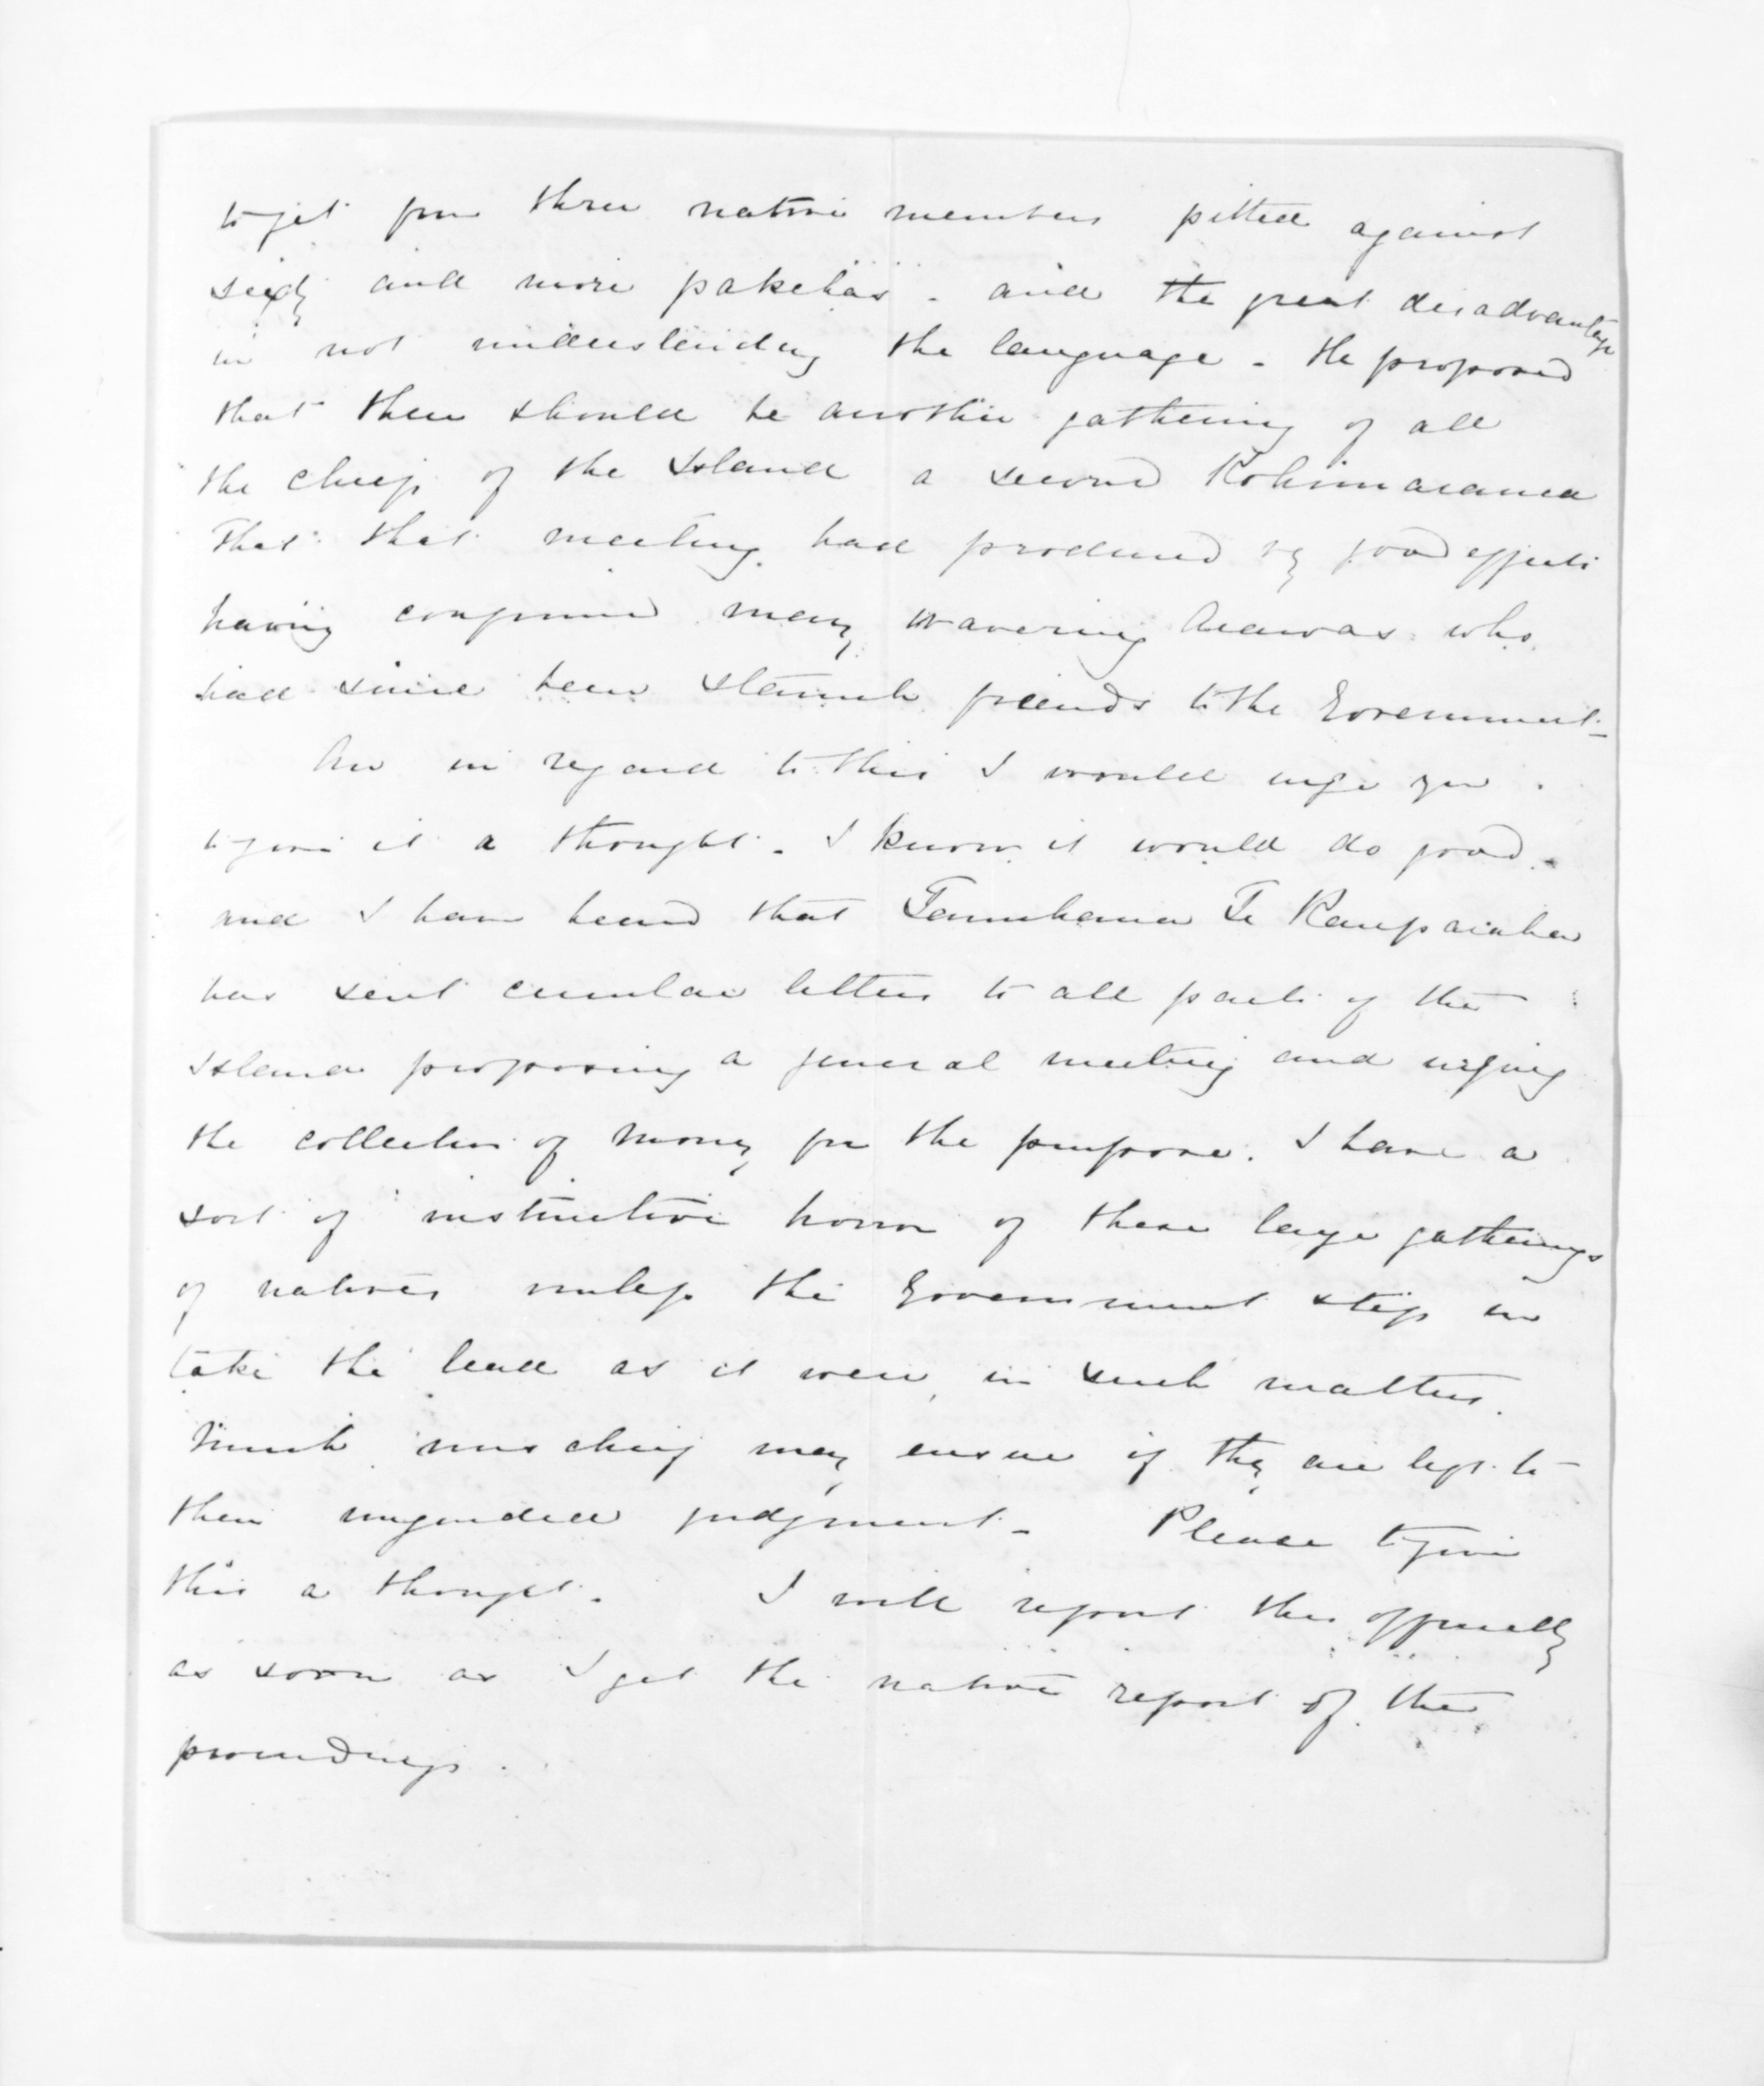 to get from three native members pitted against
sixty and more pakehas - and the great disadvantage
in not understanding the language - He proposed
that there should be another gathering of all
the chiefs of the Island a second Kohimarama
That that meeting had produced good effects
having confirmed many wavering Arawas who
had since been staunch friends to the Government -
Now in regard to this I would urge you
to give it a thought - I know it would do good -
and I have heard that Tamihana Te Rauparaha
has sent circular letters to all parts of the
Island proposing a general meeting and urging
the collection of money for the purpose. I have a
sort of instinctive horror of these large gatherings
of natives unless the Government step in
take the lead as it were, in such matters.
Much mischief may ensue if they are left to
their unguided judgment - Please to give
this a thought. I will report this officially
as soon as I get the native report of the
proceedings.